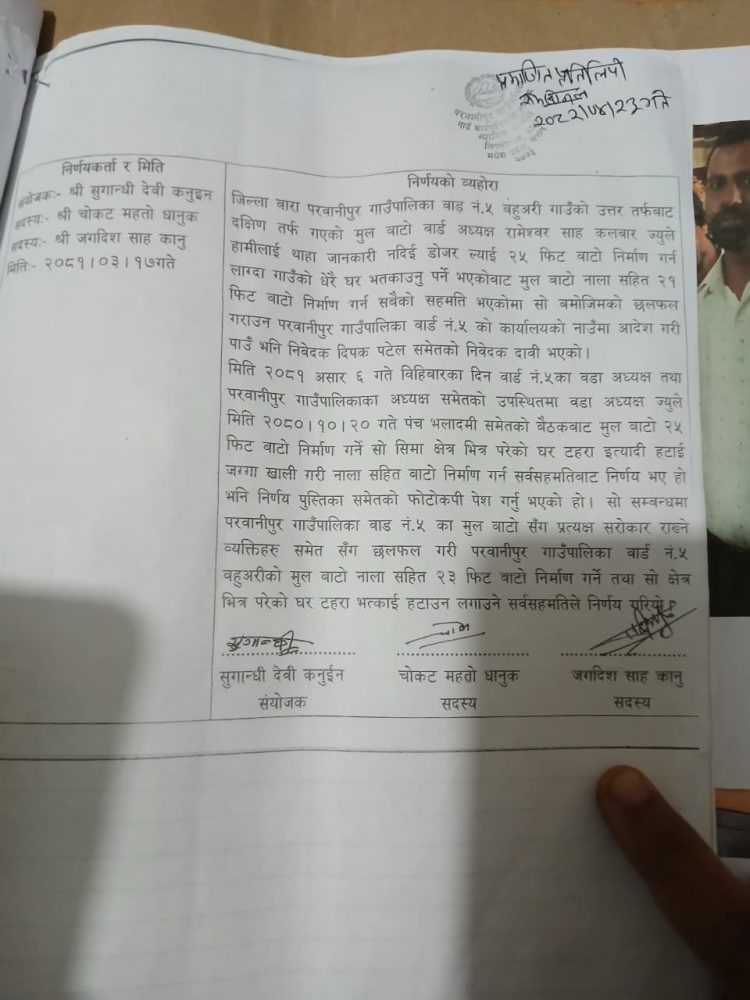 प्रमाणित प्रतिलिपी
२०८२।०४।२३ गते
परवानीपुर
निर्णयकर्ता र मिति
संयोजकः- श्री सुगान्धी देवी कनुइन
सदस्यः- श्री चोकट महतो धानुक
सदस्यः- श्री जगदिश साह कानु
मितिः- २०८१।०३।१७गते
निर्णयको व्यहोरा
जिल्ला बारा परवानीपुर गाउँपालिका वाड नं.५ बहुअरी गाउँको उत्तर तर्फबाट
दक्षिण तर्फ गएको मुल बाटो वार्ड अध्यक्ष रामेश्वर साह कलवार ज्युले
हामीलाई थाहा जानकारी नदिई डोजर ल्याई २५ फिट बाटो निर्माण गर्न
लाग्दा गाउँको धेरै घर भतकाउनु पर्ने भएकोबाट मुल बाटो नाला सहित २१
फिट बाटो निर्माण गर्न सबैको सहमति भएकोमा सो बमोजिमको छलफल
गराउन परवानीपुर गाउँपालिका वार्ड नं.५ को कार्यालयको नाउँमा आदेश गरी
पाउँ भनि निवेदक दिपक पटेल समेतको निवेदक दावी भएको।
मिति २०८१ असार ६ गते विहिबारका दिन वार्ड नं.५का वडा अध्यक्ष तथा
परवानीपुर गाउँपालिकाका अध्यक्ष समेतको उपस्थितमा वडा अध्यक्ष ज्युले
मिति २०८०।१०।२० गते पंच भलादमी समेतको बैठकवाट मुल बाटो २५
फिट बाटो निर्माण गर्ने सो सिमा क्षेत्र भित्र परेको घर टहरा इत्यादी हटाई
जग्गा खाली गरी नाला सहित बाटो निर्माण गर्न सर्वसहमतिबाट निर्णय भए हो
भनि निर्णय पुस्तिका समेतको फोटोकपी पेश गर्नु भएको हो। सो सम्बन्धमा
परवानीपुर गाउँपालिका वाड नं.५ का मुल बाटो सँग प्रत्यक्ष सरोकार राख्ने
व्यक्तिहरु समेत सँग छलफल गरी परवानीपुर गाउँपालिका वार्ड नं.५
बहुअरीको मुल बाटो नाला सहित २३ फिट बाटो निर्माण गर्ने तथा सो क्षेत्र
भित्र परेको घर टहरा भत्काई हटाउन लगाउने सर्वसहमतिले निर्णय गरियो
सुगान्धी
सुगान्धी देवी कनुईन चोकट महतो धानुक जगदिश साह कानु
संयोजक सदस्य सदस्य